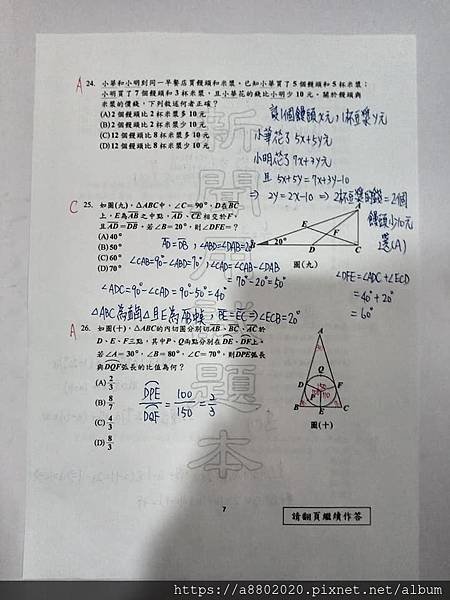 A 24. 小華和小明到同一早餐店買饅頭和米漿。已知小華買了5個饅頭和5杯米漿;
小明買了7個饅頭和3杯米漿,且小華花的錢比小明少10元。關於饅頭與
米漿的價錢,下列敘述何者正確?
(A) 2個饅頭比2杯米漿多10元
(B) 2個饅頭比2杯米漿少10元
(C) 12個饅頭比8杯米漿多10元
(D) 12個饅頭比8杯米漿少10元
設1個饅頭x元,1杯豆漿y元
小華花了 5x+5y元
小明花了 7x+3y元
且 5x+5y=7x+3y-10
⇒ 2y=2x-10 ⇒ 2杯豆漿的錢=2個
饅頭少10元
選(A)
C 25. 如圖(九),△ABC中,∠C=90°,D在BC
上,E為AB之中點,AD、CE相交於F,
且AD=DB。若∠B=20°,則∠DFE=?
(A) 40°
(B) 50°
(C) 60°
(D) 70°
A
E
F
B
20°
D
C
圖(九)
AD=DB,∠ABD=∠DAB=20°
∠CAB=90°-∠ABD=70°,∠CAD=∠CAB-∠DAB
=70°-20°=50°
∠ADC=90°-∠CAD=90°-50°=40°
△ABC為直角△且E為AB中點,BE=EC⇒∠ECB=20°
∠DFE=∠ADC+∠ECD
=40°+20°
=60°
A 26. 如圖(十),△ABC的內切圓分別切AB、BC、AC於
D、E、F三點,其中P、Q兩點分別在DE、DF上。
若∠A=30°,∠B=80°,∠C=70°,則DPE弧長
與DQF弧長的比值為何?
(A) 2/3
(B) 8/7
(C) 4/3
(D) 8/3
DPE/DQF=100/150=2/3
A
Q
D
F
P
B
E
C
圖(十)
新聞沖刺題本
7
請翻頁繼續作答
https://a8802020.pixnet.net/album